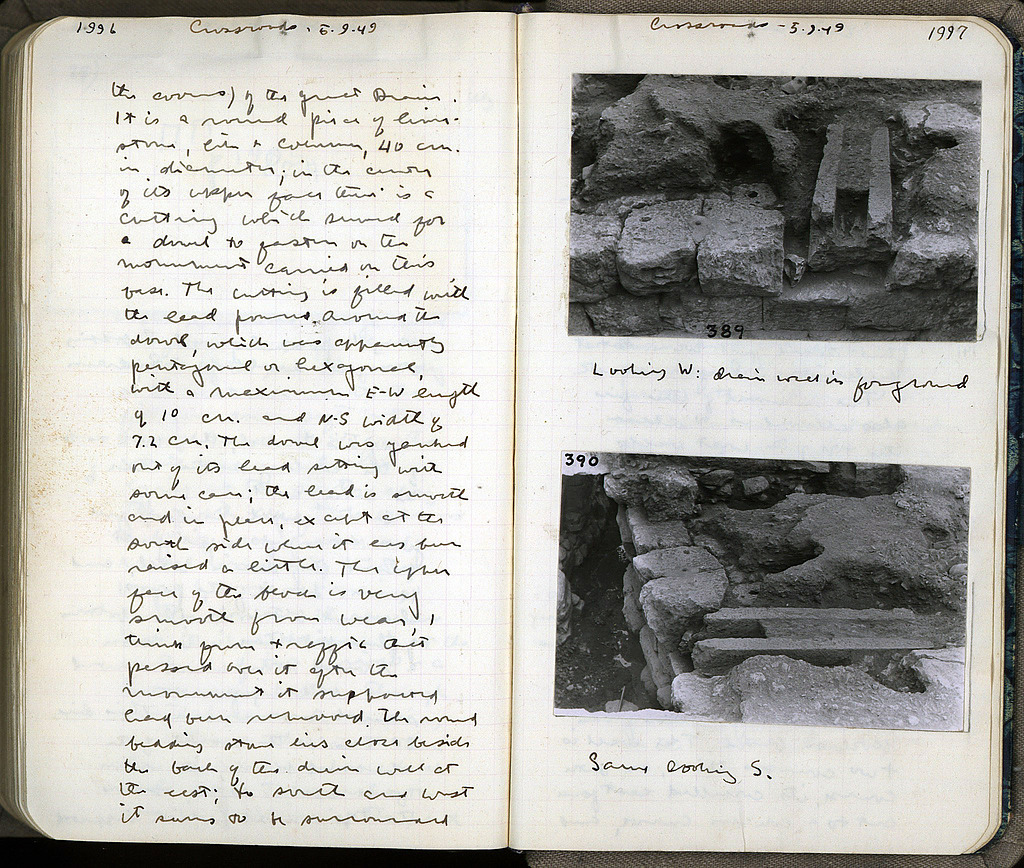 1996 Crossroads - 5.9.49
the covers) of the great Drain.
It is a round piece of lime-
stone, like a column, 40 cm.
in diameter; in the center
of its upper face there is a
cutting which served for
a dowel to fasten on the
monument carried on this
base. The cutting is filled with
the lead poured around the
dowel, which was apparently
pentagonal or hexagonal,
with a maximum E-W length
of 10 cm. and N-S width of
7.2 cm. The dowel was yanked
out of its lead setting with
some care; the lead is smooth
and in place, except at the
south side where it has been
raised a little. The upper
face of the block is very
smooth from wear, I
think from traffic that
passed over it after the
monument it supported
had been removed. The round
bedding stone lies close beside
the back of the drain wall at
the east; to south and west
it seems to be surrounded
Crossroads - 5.9.49 1997
389
Looking W: drain wall in foreground
390
Same looking S.